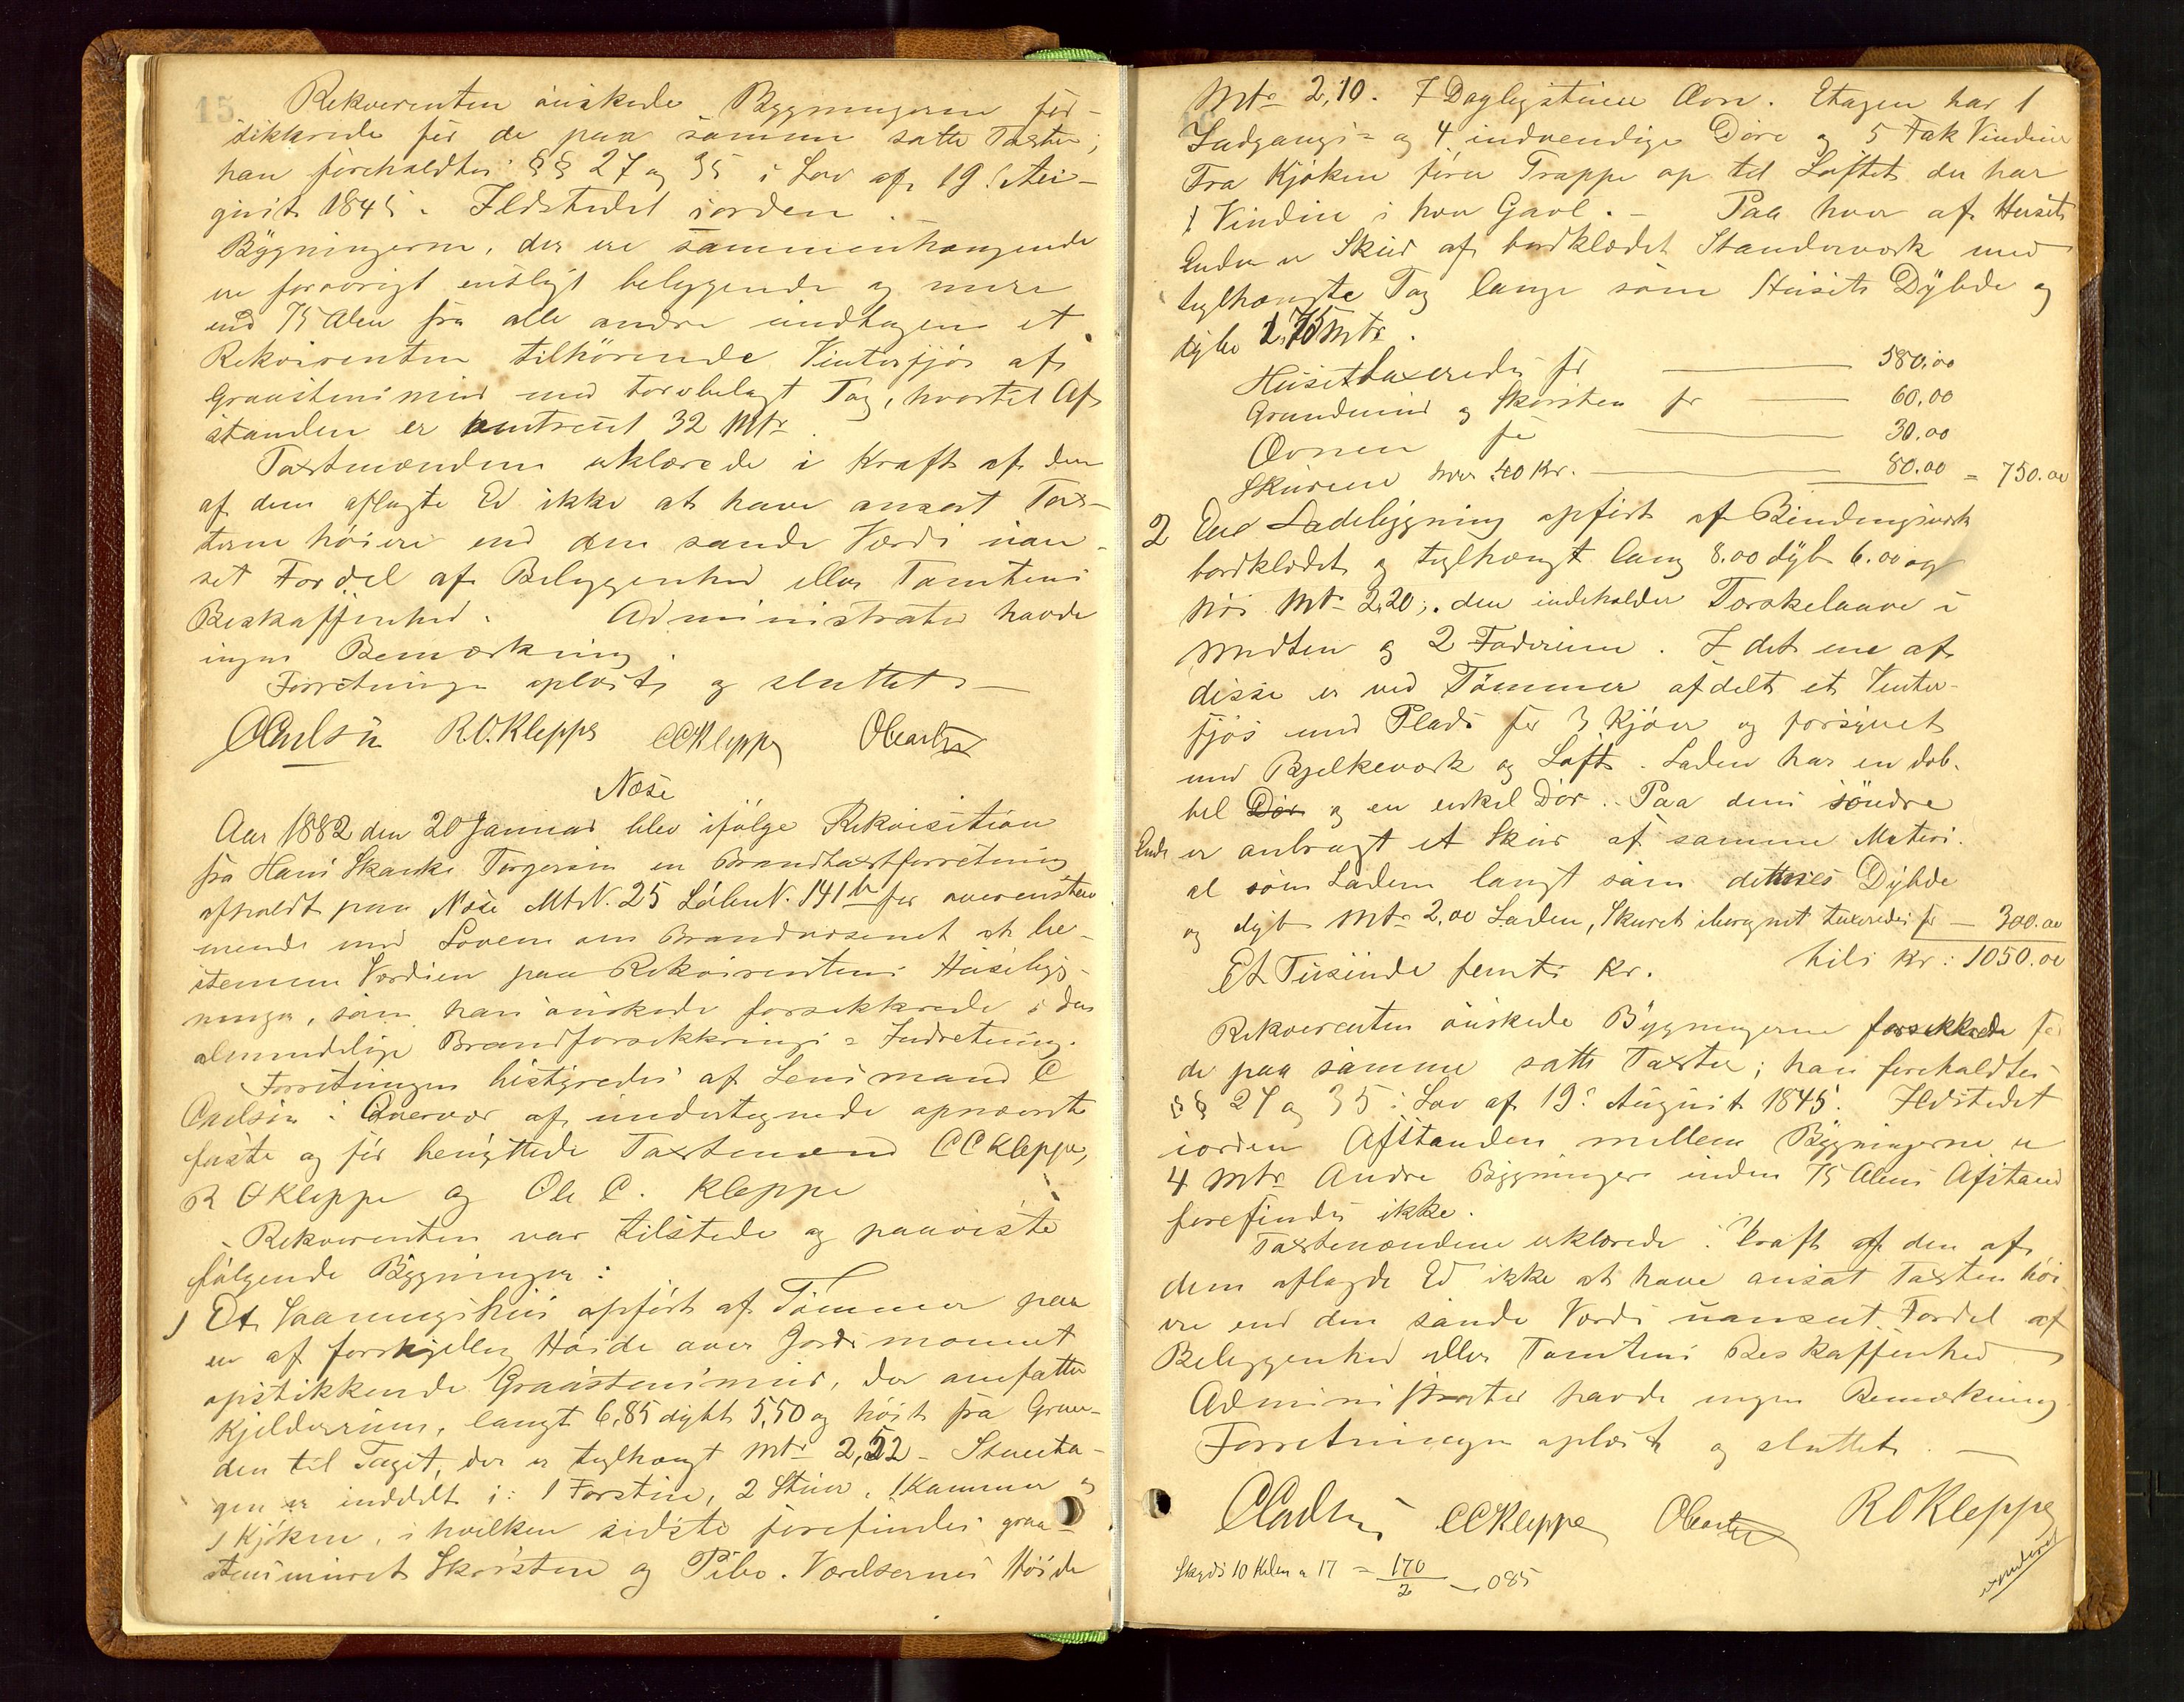 15
Rekverenten önskede Bygningerne for-
sikkrede for de paa samme satte Taxter;
han foreholdtes §§ 27 og 35 i Lov af 19. Au-
gust 1845. Ildstedet iorden.
Bygningerne, der ere sammenhængende
ere forøvrigt ensligt beliggende og mere
end 75 Alen fra alle andre undtagen et
Rekvirenten tilhörende Vinterfjös af
Graastensmur med torvbelagt Tag, hvortil Af-
standen er omtrent 32 Mtr.
Taxtmændene erklærede i Kraft af den
af dem aflagte Ed ikke at have ansat Tax-
terne höiere end den sande Værdi uan-
set Fordel af Beliggenhed eller Tomtens
Beskaffenhed. Administrator havde
ingen Bemærkning.
Forretningen oplæst og sluttet. —
CCarlsen R.O.Kleppe CCKleppe OCarlsen
Næse
Aar 1882 den 20 Januar blev ifølge Rekvisition
fra Hans Skanke Torgersen en Brandtaxtforretning
afholdt paa Næse MtN. 25 LøbeN. 141 b for overenstem-
mende med Loven om Brandvæsenet at be-
stemme Værdien paa Rekvirentens Husebyg-
ninger, som han önskede forsikkrede i den
almindelige Brandforsikkrings-Indretning.
Forretningen bestyredes af Lensmand C
Carlsen i Overvær af undertegnede opnævnte
faste og för benyttede Taxtmænd CCKleppe,
R O Kleppe og Ole C. Kleppe
Rekverenten var tilstede og paaviste
følgende Bygninger:
1 Et Vaaningshus opfört af Tömmer paa
en af forskjellig Höide over Jordsmonnet
opstikkende Graastensmur, der omfatter
Kjelderrum, langt 6,85 dybt 5,50 og höit fra Grun-
den til Taget, der er teglhængt Mtr 2,52 - Stueeta-
gen er inddelt i: 1 Forstue, 2 Stuer, 1 Kammer og
1 Kjöken, i hvilken sidste forefindes graa-
stensmuret Skorsten og Pibe. Værelsernes Höide
Mtr 2,10. I Dagligstuen Ovn. Etagen har 1
Indgangs- og 4 indvendige Döre og 5 Fak Vinduer
Fra Kjöken förer Trappe op til Loftet der har
1 Vindue i hver Gavl. - Paa hver af Husets
Ender er Skur af bordklædet Standerværk med
teglhængte Tag lange som Husets Dybde og
dybe 1,75 Mtr.
Huset taxeredes for 580.00
Grundmur og Skorsten for 60.00
Ovnen for 30.00
Skurene hver 40 Kr. 80.00 = 750.00
2 Een Ladebygning opfört af Bindingsværk
bordklædet og teglhængt lang 8.00 dyb 6.00 og
höi Mtr 2,20; den indeholder Torskelaave i
Midten og 2 Foderum. I det ene af
disse er ved Tömmer afdelt et Vinter-
fjös med Plads for 3 Kjöer og forsynet
med Bjelkeværk og Loft. Laden har en dob-
bel Dör og en enkel Dör. Paa dens söndre
Ende er anbragt et Skur af samme Materi-
al som Laden langt som dennes Dybde
og dybt Mtr 2.00 Laden, Skuret iberegnet taxeredes for — 300.00
Et Tusinde femti Kr. tils Kr: 1050.00
Rekverenten önskede Bygningerne forsikkrede for
de paa samme satte Taxter; han foreholdtes
§§ 27 og 35 i Lov af 19. August 1845. Ildstedet
iorden Afstanden mellem Bygningerne er
4 Mtr Andre Bygninger inden 75 Alens Afstand
forefindes ikke.
Taxtmændene erklærede i Kraft af den af
dem aflagde Ed ikke at have ansat Taxten höi
ere end den sande Værdi uanseet Fordel af
Beliggenhed eller Tomtens Beskaffenhed
Administrator havde ingen Bemærkning
Forretningen oplæst og sluttet. —
CCarlsen CCKleppe OCarlsen R O Kleppe
Skyds 10 Kilm a 17 = 170/2 — 085